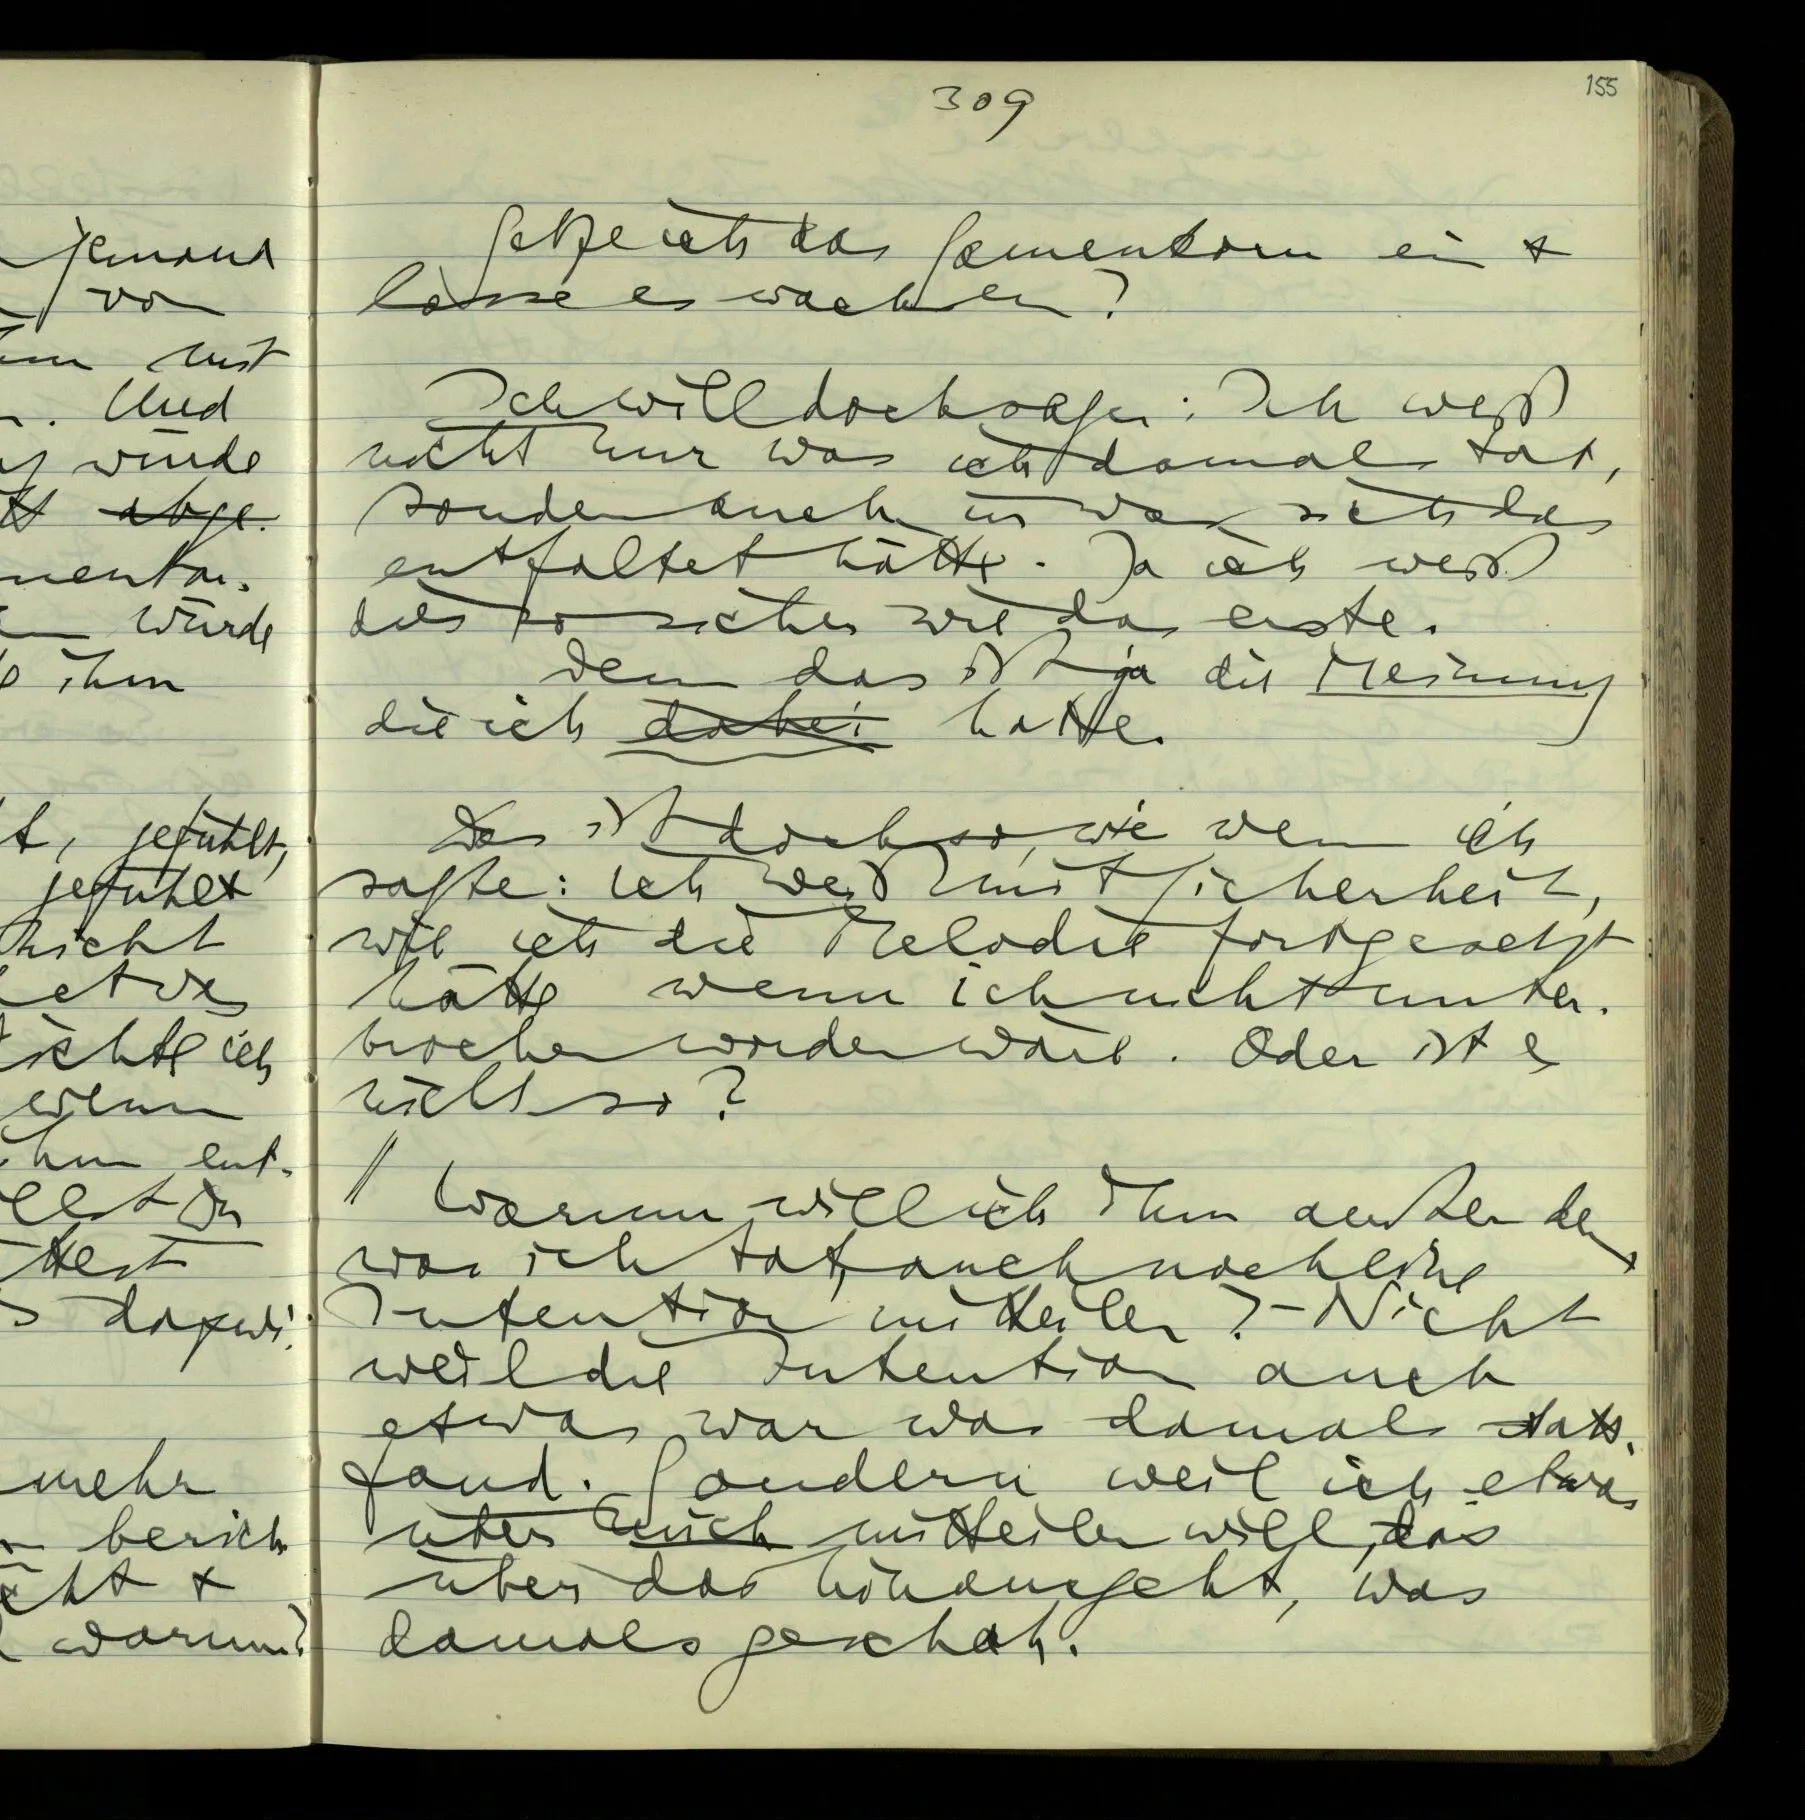 309
155
Setze ich das Samenkorn ein &
lasse es wachsen?
Ich will doch sagen: Ich weiß
nicht nur was ich damals tat,
sondern auch in was sich das
entfaltet hätte. Ja ich weiß
dies so sicher wie das erste.
Denn das ist ja die Meinung
die ich dabei hatte.
Das ist doch so, wie wenn ich
sagte: ich weiß mit Sicherheit,
wie ich die Melodie fortgesetzt
hätte wenn ich nicht unter-
brochen worden wäre. Oder ist es
nicht so?
// Warum will ich ihm außer dem
was ich tat, auch noch eine
Intention mitteilen? – Nicht
weil die Intention auch
etwas war was damals statt-
fand. Sondern weil ich etwas
über mich mitteilen will, das
über das hinausgeht, was
damals geschah.
jemand
von
mit
. Und
würde
abge-
würde
ihm
gefühlt,
gefühlt
nicht
etwas
ich
wenn
ihm ent-
Du
dazwi-
mehr
berich
&
warum?